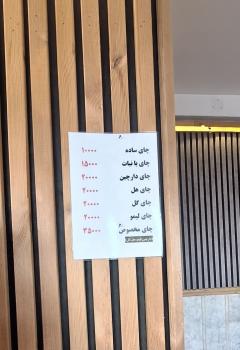 چای ساده ۱۰۰۰۰
چای با نبات ۱۵۰۰۰
چای دارچین ۲۰۰۰۰
چای هل ۲۰۰۰۰
چای گل ۲۰۰۰۰
چای لیمو ۲۰۰۰۰
چای مخصوص ۳۵۰۰۰